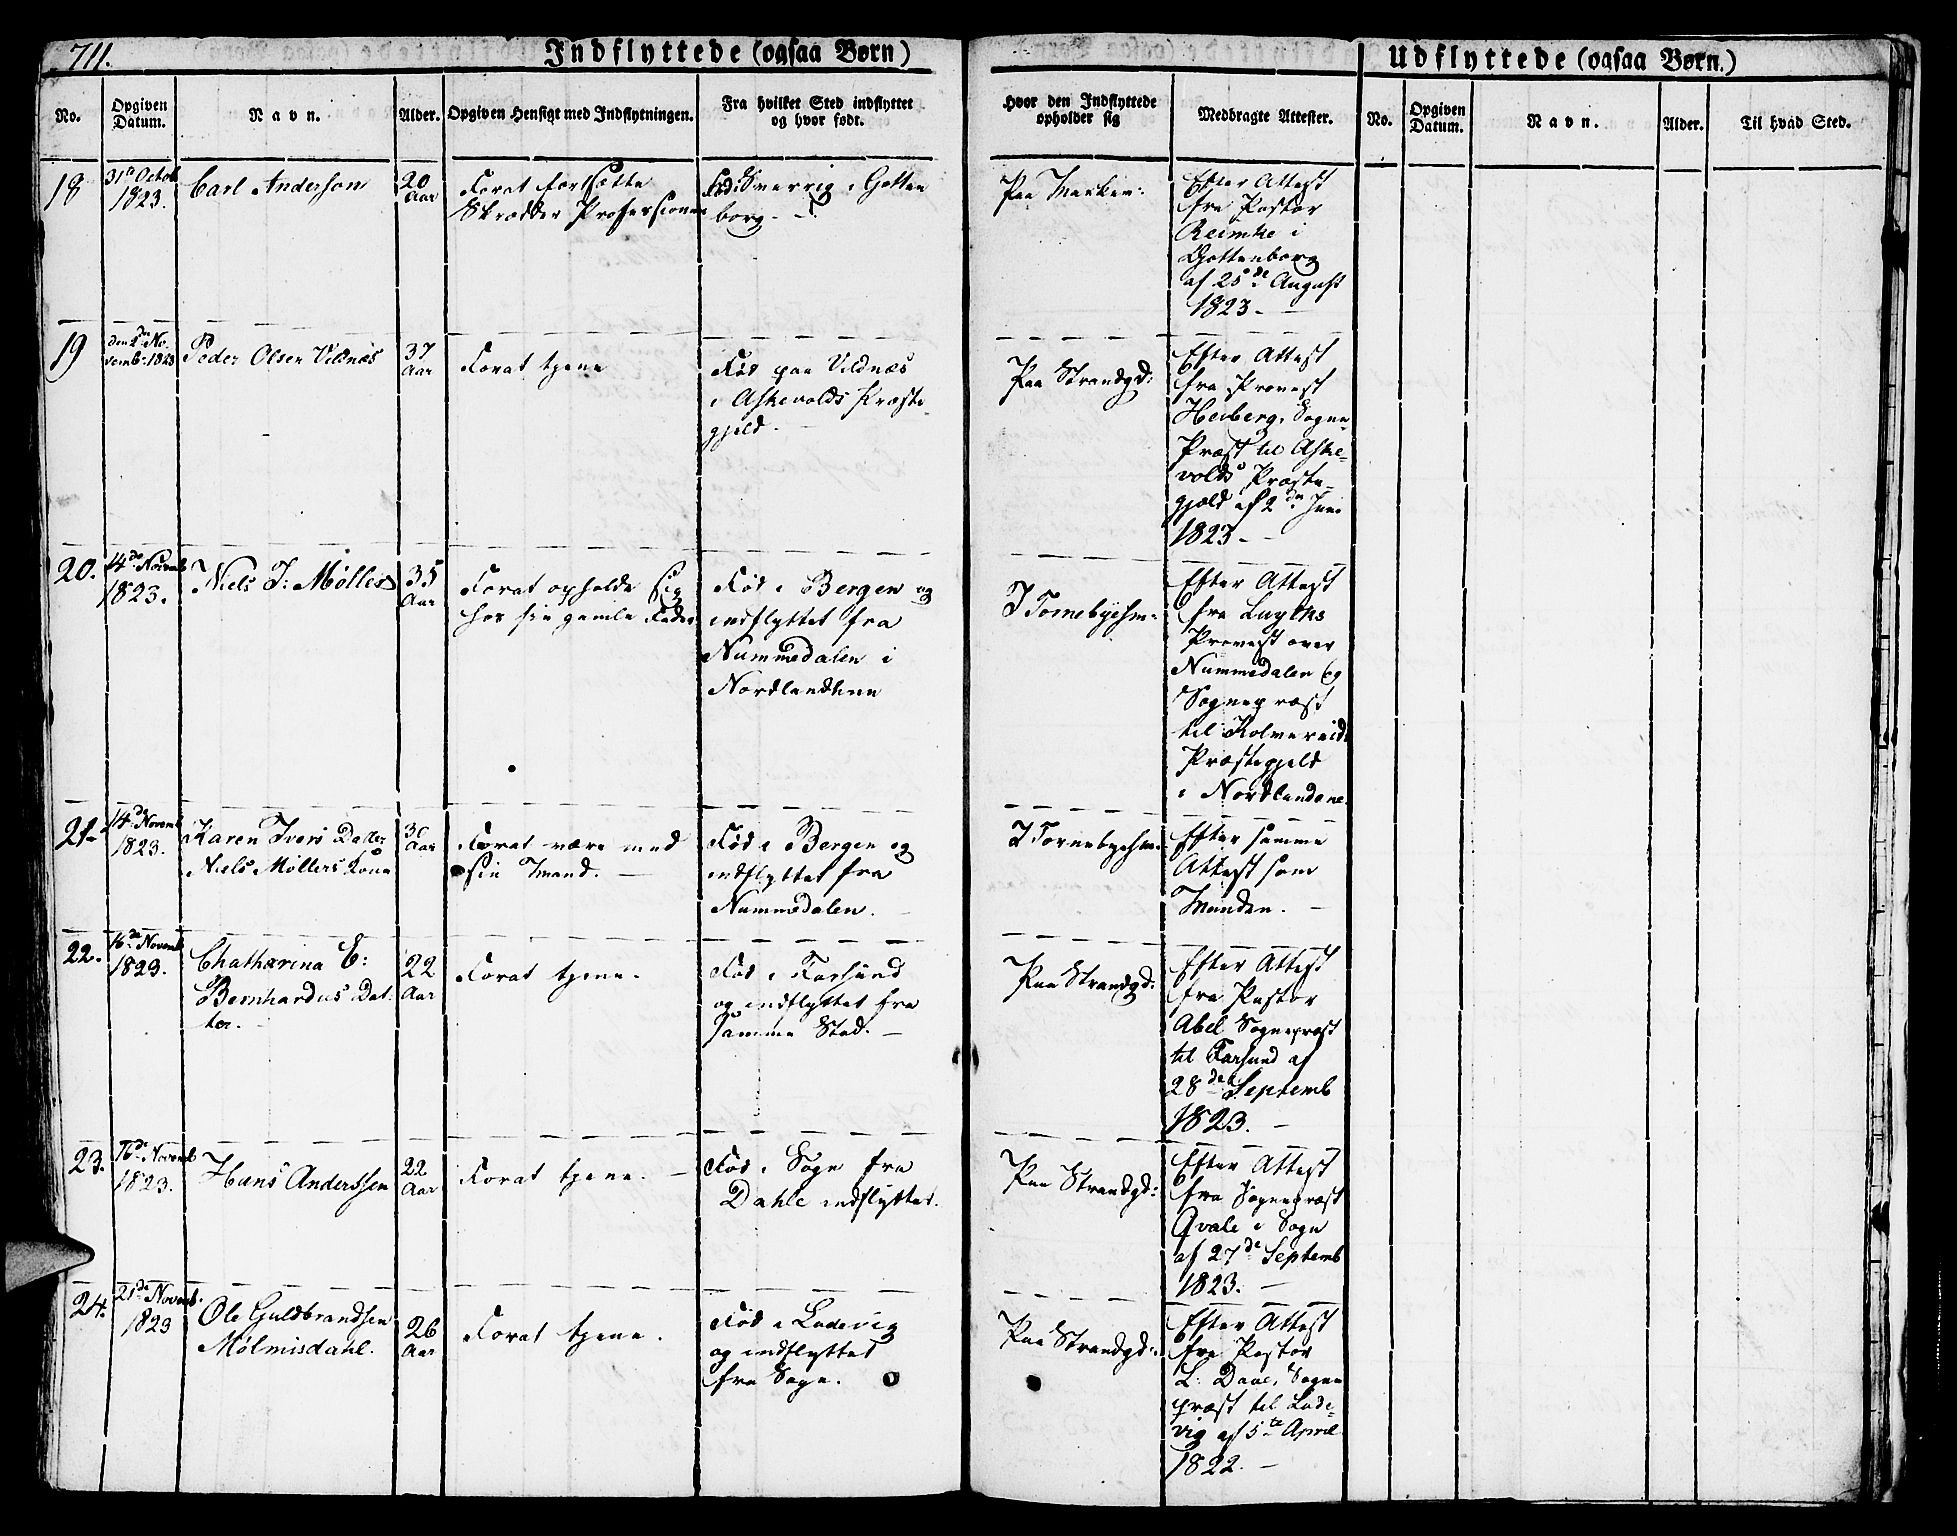 711.
Indflyttede (ogsaa Børn)
Udflyttede (ogsaa Børn.)
No.
Opgiven
Datum.
Navn.
Alder.
Opgiven Hensigt med Indflytningen.
Fra hvilket Sted indflyttet
og hvor født.
Hvor den Indflyttede
opholder sig
Medbragte Attester.
No.
Opgiven
Datum.
Navn.
Alder.
Til hvad Sted.
18
31te Octob
1823.
Carl Anderson
20
Aar
Forat fortsætte
Skrædder Professionen
Fød i Sverrig i Gotten
borg. -
Paa Marken:
Efter Attest
fra Pastor
Reimke i
Gottenborg
af 25de August
1823. -
19
den 1de No-
vemb: 1823
Peder Olsen Vildnæs
37
Aar
Forat tjene
Fød paa Vildnæs
i Askevolds Præste-
gjeld. -
Paa Strandgd:
Efter Attest
fra Provest
Heiberg, Sogne-
Præst til Aske-
volds Præste-
gjæld af 2den Juni
1823 -
20.
14de Novemb
1823.
Niels J: Møller
35
Aar
Forat opholde sig
hos sin gamle Fader
Fød i Bergen og
indflyttet fra
Nummedalen i
Nordlandene
I Tornebyehm-
Efter Attest
fra
Provest over
Nummedalen og
Sognepræst
til Kolvereids
Præstegjeld
i Nordlandene.
21
14de Novemb
1823.
Karen Ivers Datter
Niels Møllers Kone
30
Aar
Forat være med
sin Mand. -
Fød i Bergen og
indflyttet fra
Nummedalen. -
I Tornebyehm.
Efter samme
Attest som
Manden. -
22.
16de Novemb
1823.
Chatharina E:
Bernhardus Dat-
ter. -
22
Aar
Forat tjene.
Fød i Farsund
og indflyttet fra
samme Sted. -
Paa Strandgd:
Efter Attest
fra Pastor
Abel Sognepræst
til Farsund af
28de Septemb
1823. -
23.
16de Novemb
1823.
Hans Anderssen
22
Aar
Forat tjene. -
Fød i Sogn fra
Dahle indflyttet.
Paa Strandgd:
Efter Attest
fra Sognepræst
Qvale i Sogn
af 27de Septemb
1823. -
24.
21de Novemb.
1823
Ole Guldbrandsen
Mølmisdahl.
26
Aar
Forat tjene.
Fød i Ladevig
og indflyttet
fra Sogn.
Paa Strandgd:
Efter Attest
fra Pastor
L: Daae, Sogne
præst til Lade-
vig af 5te April
1822. -